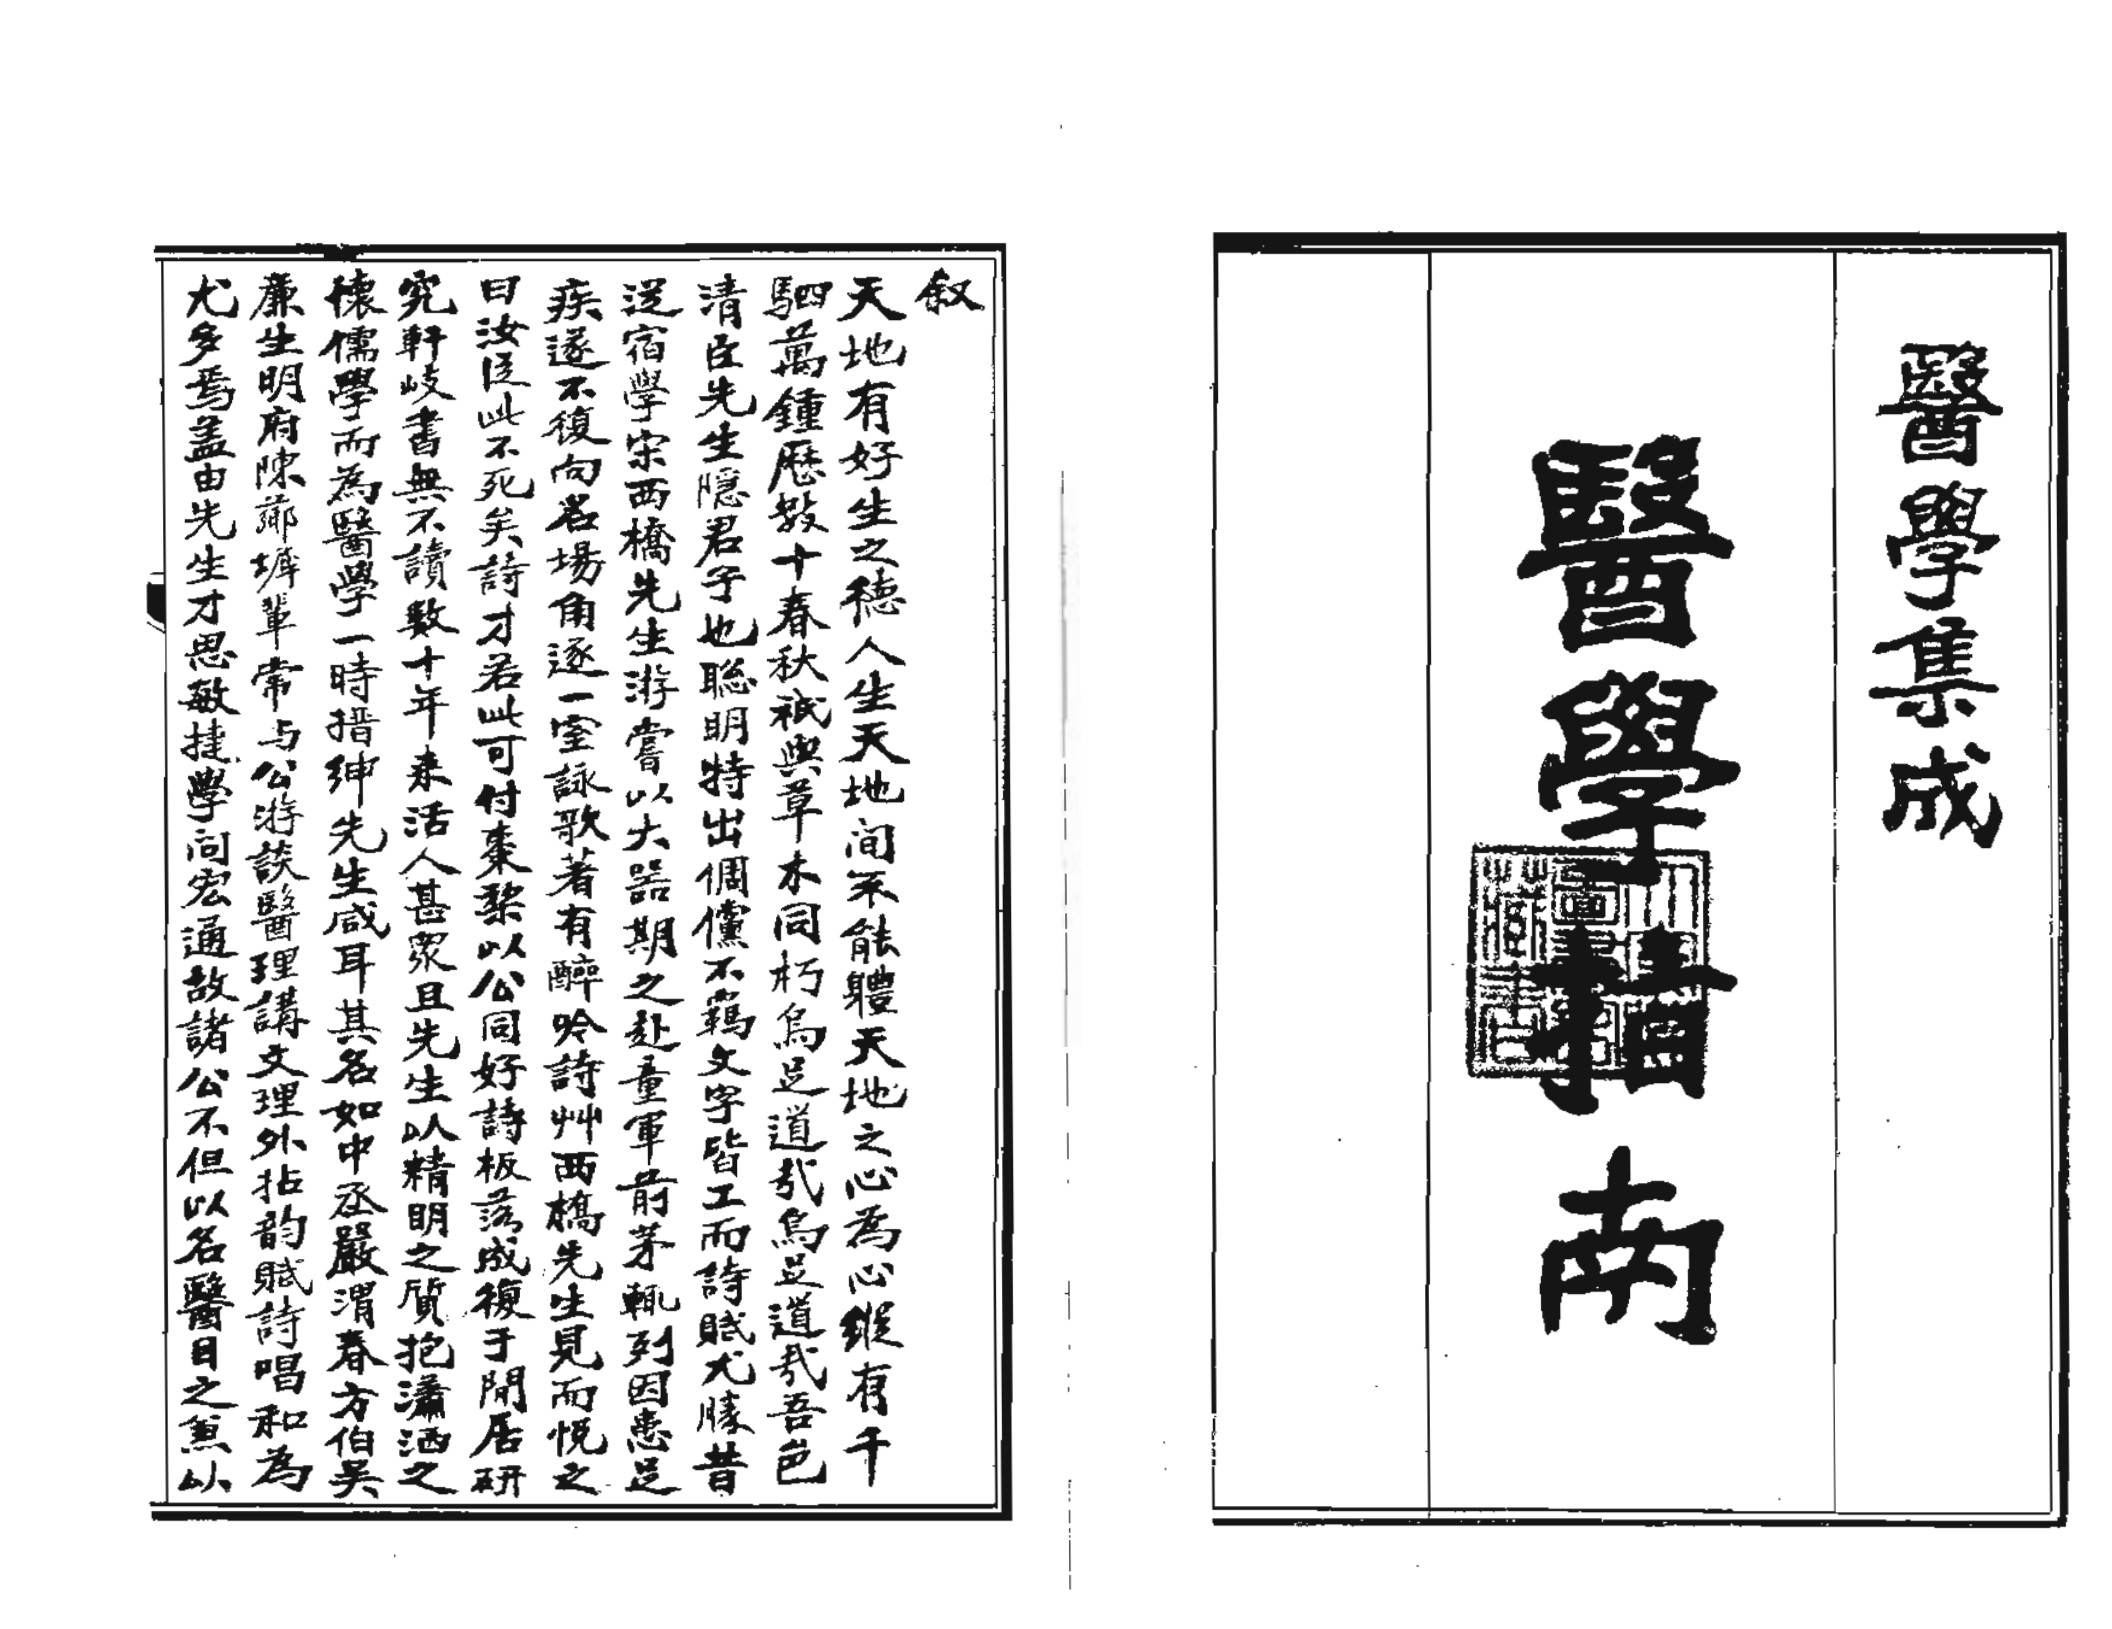 醫學集成
醫學指南
叙
天地有好生之德人生天地間不能體天地之心為心縱有千
駟萬鍾歷數十春秋衹與草木同朽烏足道哉烏足道哉吾邑
清臣先生隱君子也聰明特出倜儻不羈文字皆工而詩賦尤勝昔
從宿學宋西橋先生游嘗以大器期之赴童軍前茅輒列因患足
疾遂不復向名場角逐一室詠歌著有醉吟詩艸西橋先生見而悦之
曰汝從此不死矣詩才若此可付棗棃以公同好詩板落成復于閒居研
究軒岐書無不讀數十年来活人甚衆且先生以精明之質抱瀟洒之
懷儒學而為醫學一時搢紳先生咸耳其名如中丞嚴渭春方伯吳
廉生明府陳墀輩常与公游談醫理講文理外拈韵賦詩唱和為
尤多焉盖由先生才思敏捷學问宏通故諸公不但以名醫目之兼以